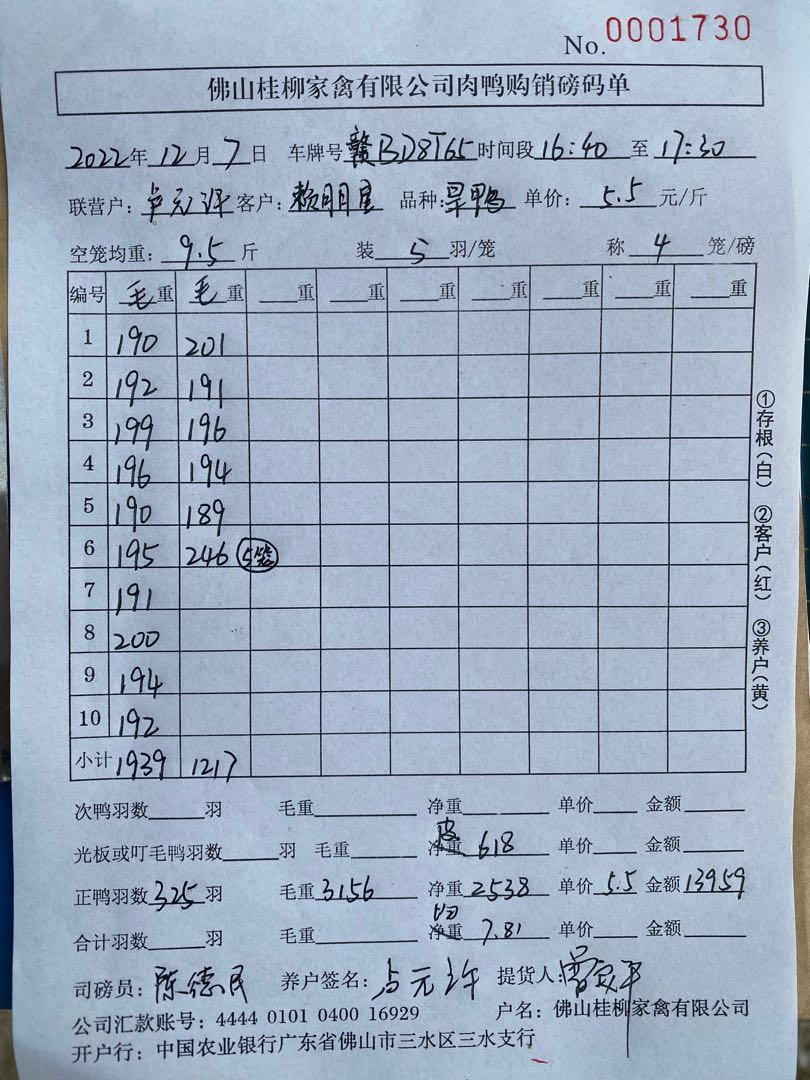 No. 0001730
佛山桂柳家禽有限公司肉鸭购销磅码单
2022年 12月 7日 车牌号 赣BD8T65 时间段 16:40 至 17:30
联营户: 卢元许 客户: 赖明星 品种: 旱鸭 单价: 5.5 元/斤
空笼均重: 9.5 斤 装 5 羽/笼 称 4 笼/磅
编号 毛重 毛重 重 重 重 重 重 重 重
1 190 201
2 192 191
3 199 196
4 196 194
5 190 189
6 195 246 5笼
7 191
8 200
9 194
10 192
小计 1939 1217
次鸭羽数 羽 毛重 净重 单价 金额
光板或叮毛鸭羽数 羽 毛重 皮重 618 单价 金额
正鸭羽数 325 羽 毛重 3156 净重 2538 单价 5.5 金额 13959
合计羽数 羽 毛重 均重 7.81 单价 金额
司磅员: 陈德民 养户签名: 卢元许 提货人:
公司汇款账号: 4444 0101 0400 16929 户名: 佛山桂柳家禽有限公司
开户行: 中国农业银行广东省佛山市三水区三水支行
①存根(白) ②客户(红) ③养户(黄)